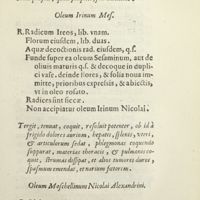 Oleum Irinum Mes.
R. Radicum Ireos, lib. vnam.
Florum eiusdem, lib. duas.
Aquæ decoctionis rad. eiusdem, q. s.
Funde super ea oleum Sesaminum, aut de
oliuis maturis q. s. & decoque in dupli-
ci vase. deinde flores, & folia noua im-
mitte, prioribus expressis, & abiectis,
vt in oleo rosato.
Radices sint siccæ.
Non accipiatur oleum Irinum Nicolai.
Tergit, tenuat, coquit, resoluit potenter, ob id à
frigido dolores aurium, hepatis, splenis, vteri,
& articulorum sedat, phlegmonas coquendo
suppurat, materias thoracis, & pulmonis co-
quit, strumas dissipat, et alios tumores duros,
spasmum emendat, et narium fœtorem.
Oleum Moschellinum Nicolai Alexandrini.